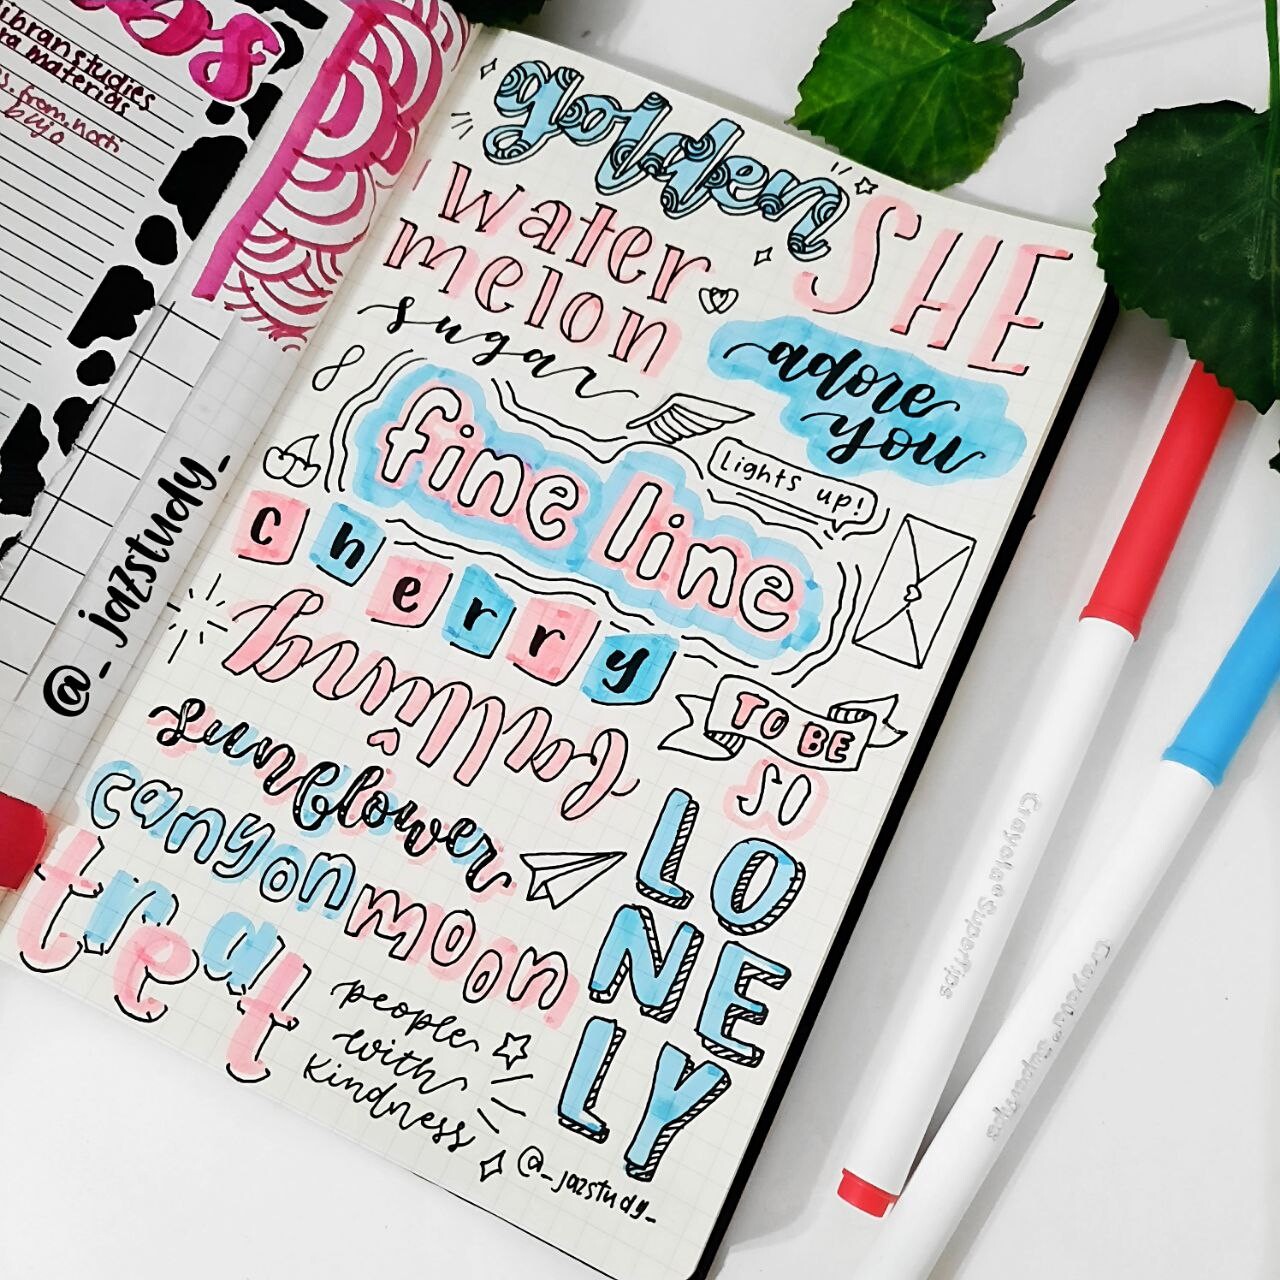 materials
bujo
@_jazstudy_
golden
water
melon
sugar
SHE
adore
you
fine line
Lights up!
cherry
falling
TO BE
SO
LO
NE
LY
sunflower
canyon moon
treat
people
with
kindness
@_jazstudy_
Crayola Supertips
Crayola Supertips